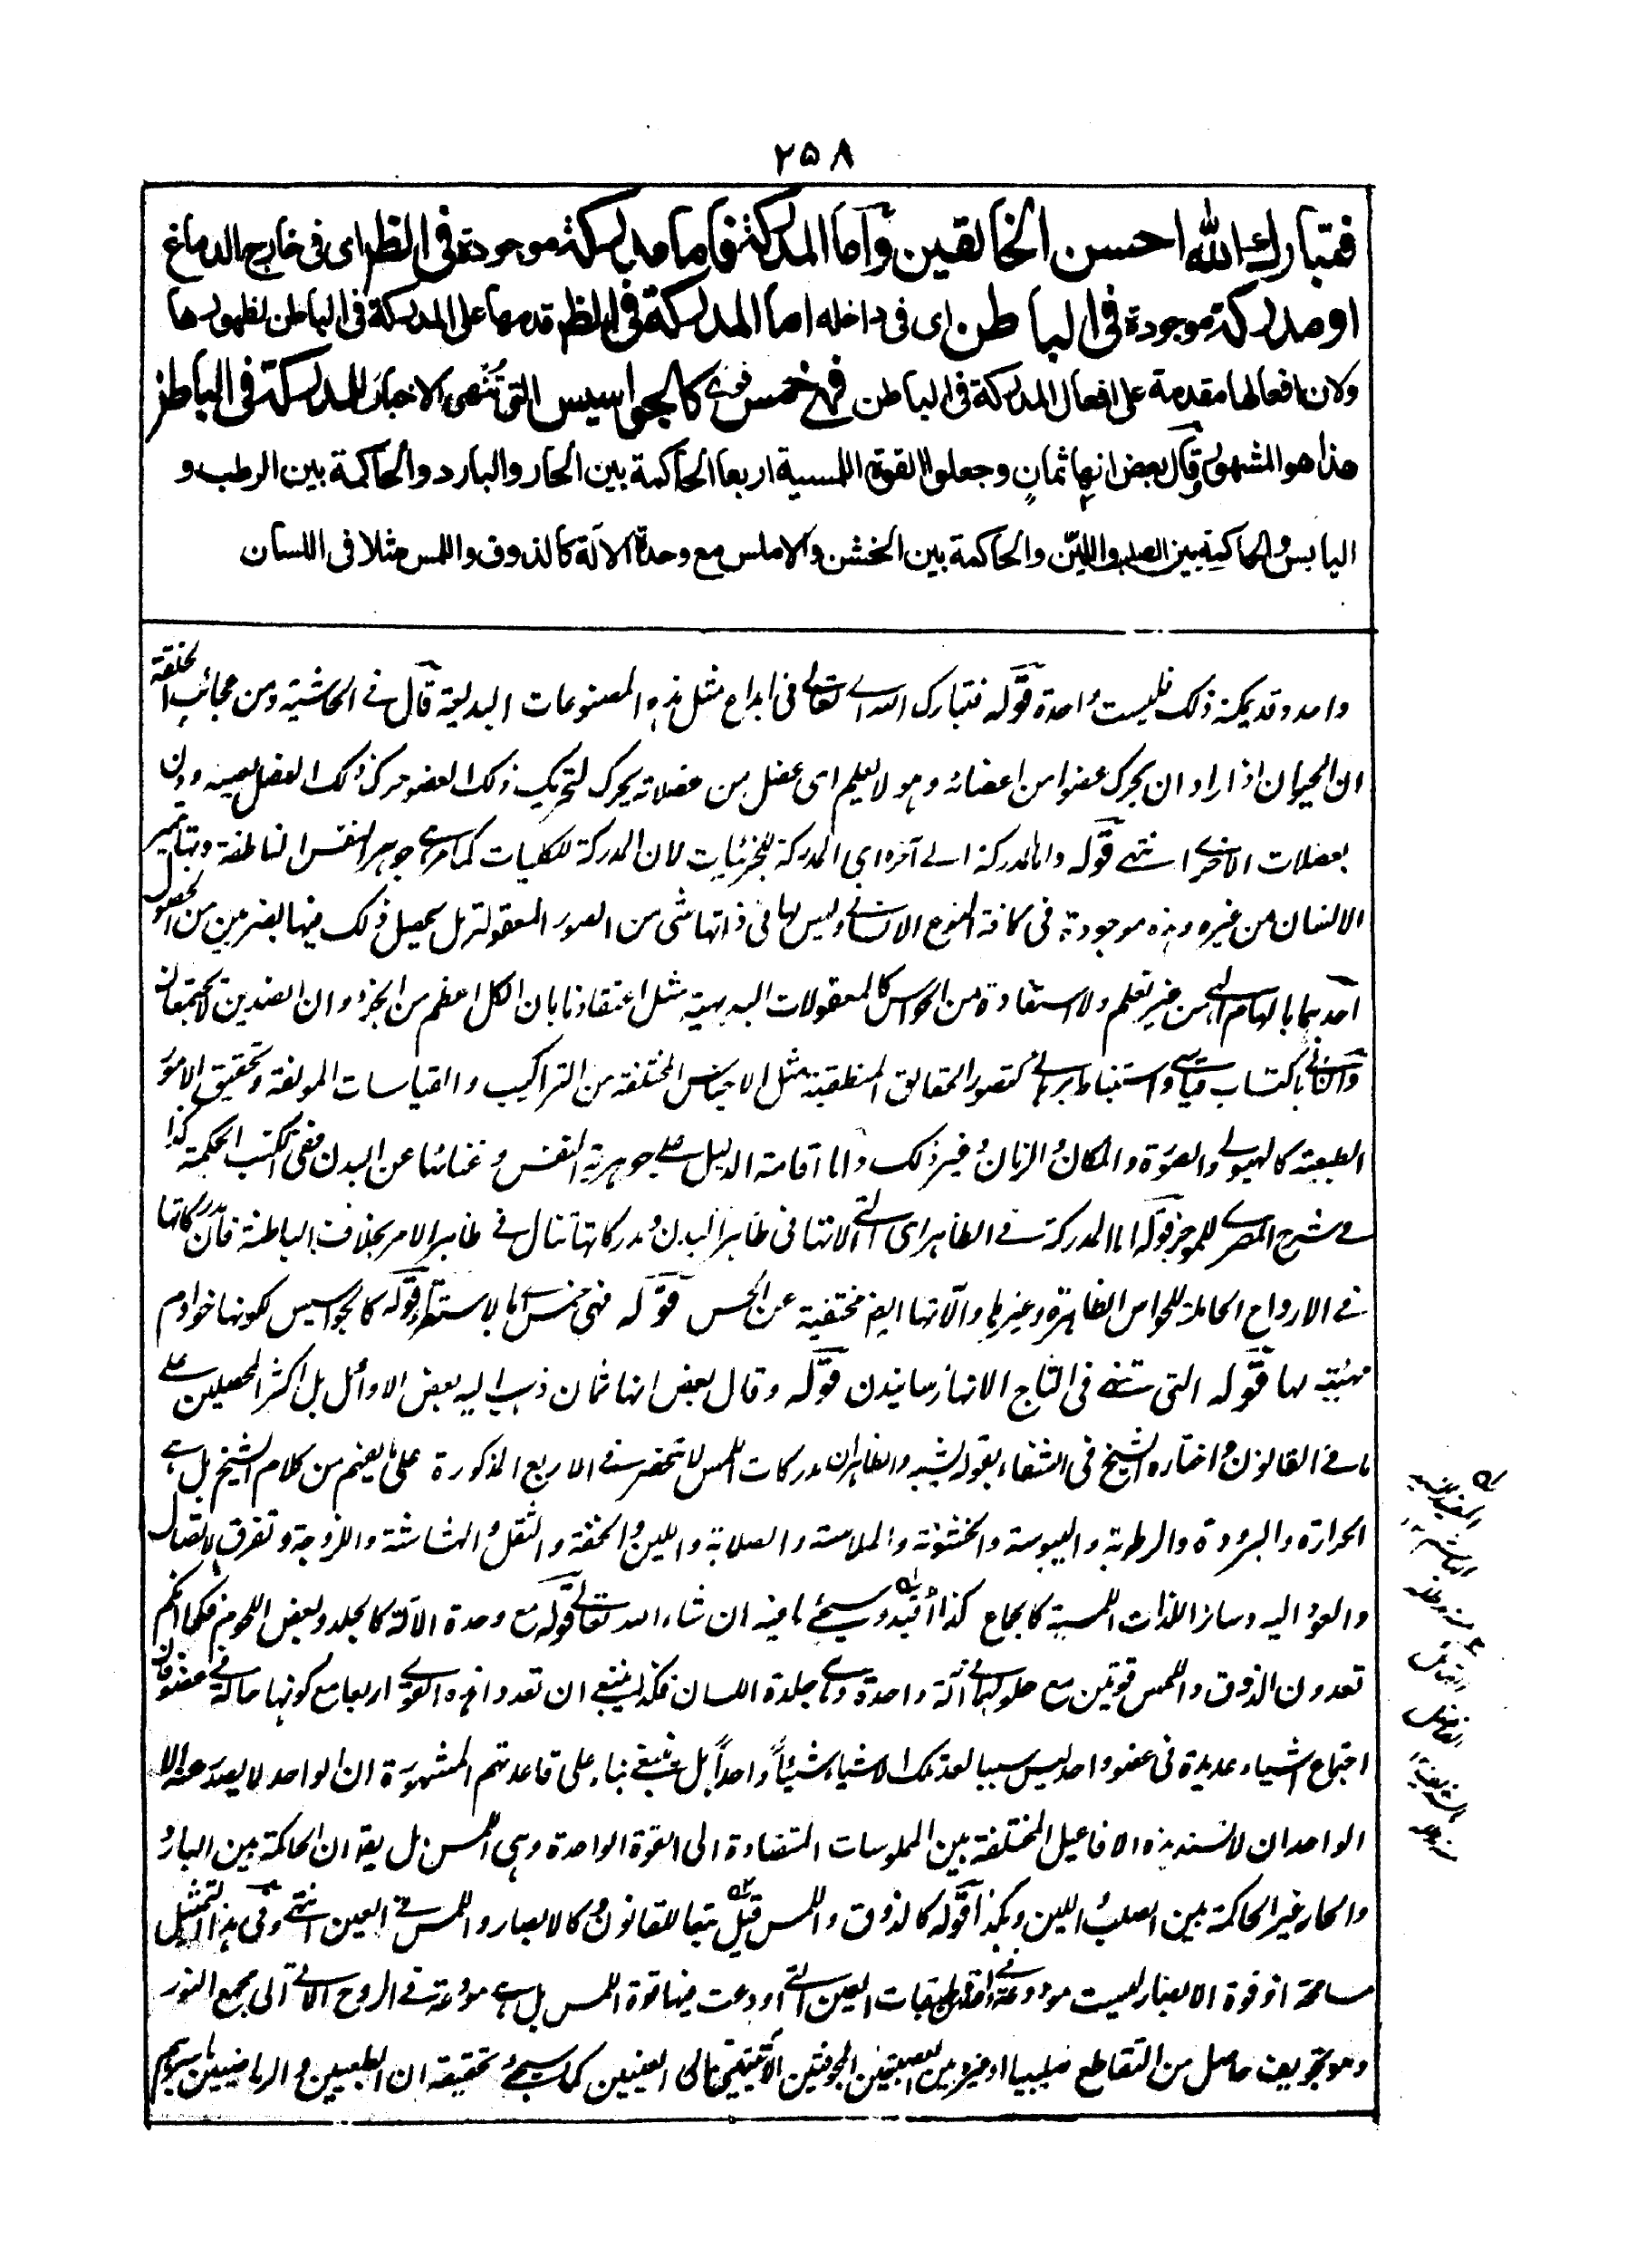 ٢٥٨
فتبارك الله احسن الخالقين وآما المدركة فاما مدركة موجودة فى الظهر اى فى خارج الدماغ
او مدركة موجودة فى الباطن اى فى داخله اما المدركة فى الظهر قدمها على المدركة فى الباطن لظهورها
ولان افعالها مقدمة على افعال المدركة فى الباطن فهى خمس قوى كالجواسيس التى تُنهى الاخبار للمدركة فى الباطن
هذا هو المشهور وقال بعض انها ثمانٍ وجعلوا القوة اللمسية اربعا الحاكمة بين الحار والبارد والحاكمة بين الرطب و
اليابس والحاكمة بين الصلب واللين والحاكمة بين الخشن والاملس مع وحدة الآلة كالذوق واللمس مثلا فى اللسان
واحد وقد يمكنه ذلك فليست واحدة قوله فتبارك الله اى تعالى فى ابداع مثل هذه المصنوعات البديعة قال فى الحاشية ومن عجائب الخلقة
ان الحيوان اذا اراد ان يحرك عضوا من اعضائه وهو لا يعلم اى عضل من عضلاته يحرك لتحريك ذلك العضو حرك ذلك العضل بعينه دون
عضلات الاخرى انتهى قوله واما المدركة الى آخره اى المدركة للجزئيات لان المدركة للكليات كما مر هى جوهر النفس الناطقة وبها تميز
الانسان من غيره وهذه موجودة فى كافة النوع الانسانى وليس لها فى ذاتها شئ من الصور المعقولة بل يحصل ذلك فيها بضربين من الحصول
احدهما بالهام الهى من غير تعلم ولا استفادة من الحواس كالمعقولات البديهية مثل اعتقادنا بان الكل اعظم من الجزء وان الضدين لا يجتمعان
والثانى باكتساب قياسى واستنباط برهانى كتصور الحقائق المنطقية مثل الاجناس المختلفة من التراكيب والقياسات المولفة وتحقيق الامور
الطبيعية كالهيولى والصورة والمكان والزمان وغير ذلك واما اقامة الدليل على جوهرية النفس وغنائها عن البدن ففى الكتب الحكمية كذا
فى شرح المصرى للموجز قوله اما المدركة فى الظاهر اى التى آلاتها فى ظاهر البدن ومدركاتها تنال فى ظاهر الامر بخلاف الباطنة فان مدركاتها
فى الارواح الحاملة للحواس الظاهرة وغيرها وآلاتها ايضا مختفية عن الحس قوله فهى خمس اما بالاستقراء قوله كالجواسيس لكونها خوادم
منهية لها قوله التى تنهى فى التاج الانهاء رسانيدن قوله وقال بعض انها ثمان ذهب اليه بعض الاوائل بل اكثر المحصلين على
ما فى القانون واختاره الشيخ فى الشفاء بقوله يشبه والظاهر ان مدركات اللمس لا تنحصر فى الاربع المذكورة على ما يفهم من كلام الشيخ بل هى
الحرارة والبرودة والرطوبة واليبوسة والخشونة والملاسة والصلابة واللين والخفة والثقل والهشاشة واللزوجة وتفرق الاتصال
والعود اليه وسائر اللذات اللمسية كالجماع كذا افيد وسيجئ ما فيه ان شاء الله تعالى قوله مع وحدة الآلة كالجلد وبعض اللحوم فكما انكم
تعدون الذوق واللمس قوتين مع حلولهما فى آلة واحدة وهى جلدة اللسان فكذلك ينبغى ان تعدوا هذه القوى اربعا مع كونها حالة فى عضو فان
اجتماع اشياء عديدة فى عضو واحد ليس سببا لعد تلك الاشياء شيئاً واحداً بل ينبغى بناء على قاعدتهم المشهورة ان الواحد لا يصدر عنه الا
الواحد ان لا تسند هذه الافاعيل المختلفة بين الملموسات المتضادة الى القوة الواحدة وهى اللمس بل يقه ان الحاكمة بين البارد
والحار غير الحاكمة بين الصلب واللين وهكذا قوله كالذوق واللمس قيل تبعا للقانون وكالابصار واللمس فى العين انتهى وفى هذا التمثيل
مسامحة اذ قوة الابصار ليست مودوعة فى طبقات العين التى اودعت فيها قوة اللمس بل هى مودعة فى الروح الآتى الى مجمع النور
وهو تجويف حاصل من التقاطع صليبيا او غيره بين العصبتين المجوفتين الآتيتين الى العينين كما سيجئ تحقيقه ان الطبعيين والرياضيين